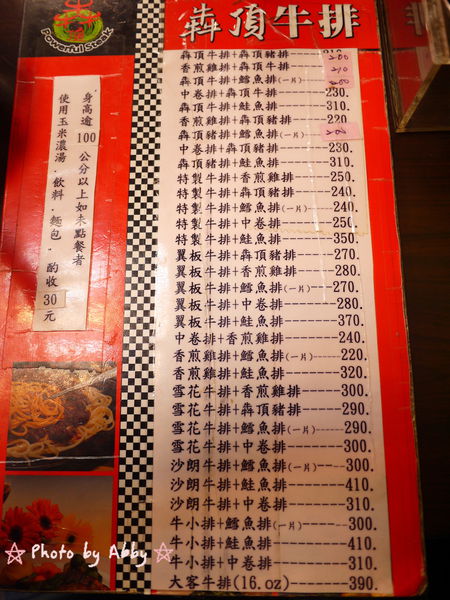 Powerful Steak
犇頂牛排
身高逾100公分以上如未點餐者
使用玉米濃湯.飲料.麵包.酌收30元
犇頂牛排+犇頂豬排
香煎雞排+犇頂牛排
犇頂牛排+鱈魚排(一片)
中卷+犇頂牛排-----230.
犇頂牛排+鮭魚排-----310.
香煎雞排+犇頂豬排-----220
犇頂豬排+鱈魚排(一片)
中卷+犇頂豬排------230.
犇頂豬排+鮭魚排-----310.
特製牛排+香煎雞排----250.
特製牛排+犇頂豬排----240.
特製牛排+鱈魚排(一片)---240.
特製牛排+中卷排-----250
特製牛排+鮭魚排-----350.
翼板牛排+犇頂豬排----270.
翼板牛排+香煎雞排----280.
翼板牛排+鱈魚排(一片)--270.
翼板牛排+中卷排-----280.
翼板牛排+鮭魚排-----370.
中卷排+香煎雞排-----240.
香煎雞排+鱈魚排(一片)---220.
香煎雞排+鮭魚排-----320.
雪花牛排+香煎雞排----300.
雪花牛排+犇頂豬排----290.
雪花牛排+鱈魚排(一片)---290.
雪花牛排+中卷排-----300.
沙朗牛排+鱈魚排(一片)---300.
沙朗牛排+鮭魚排-----410.
沙朗牛排+中卷排-----310.
牛小排+鱈魚排(一片)----300.
牛小排+鮭魚排------410.
牛小排+中卷排------310.
大客牛排(16.oz)------390.
Photo by Abby